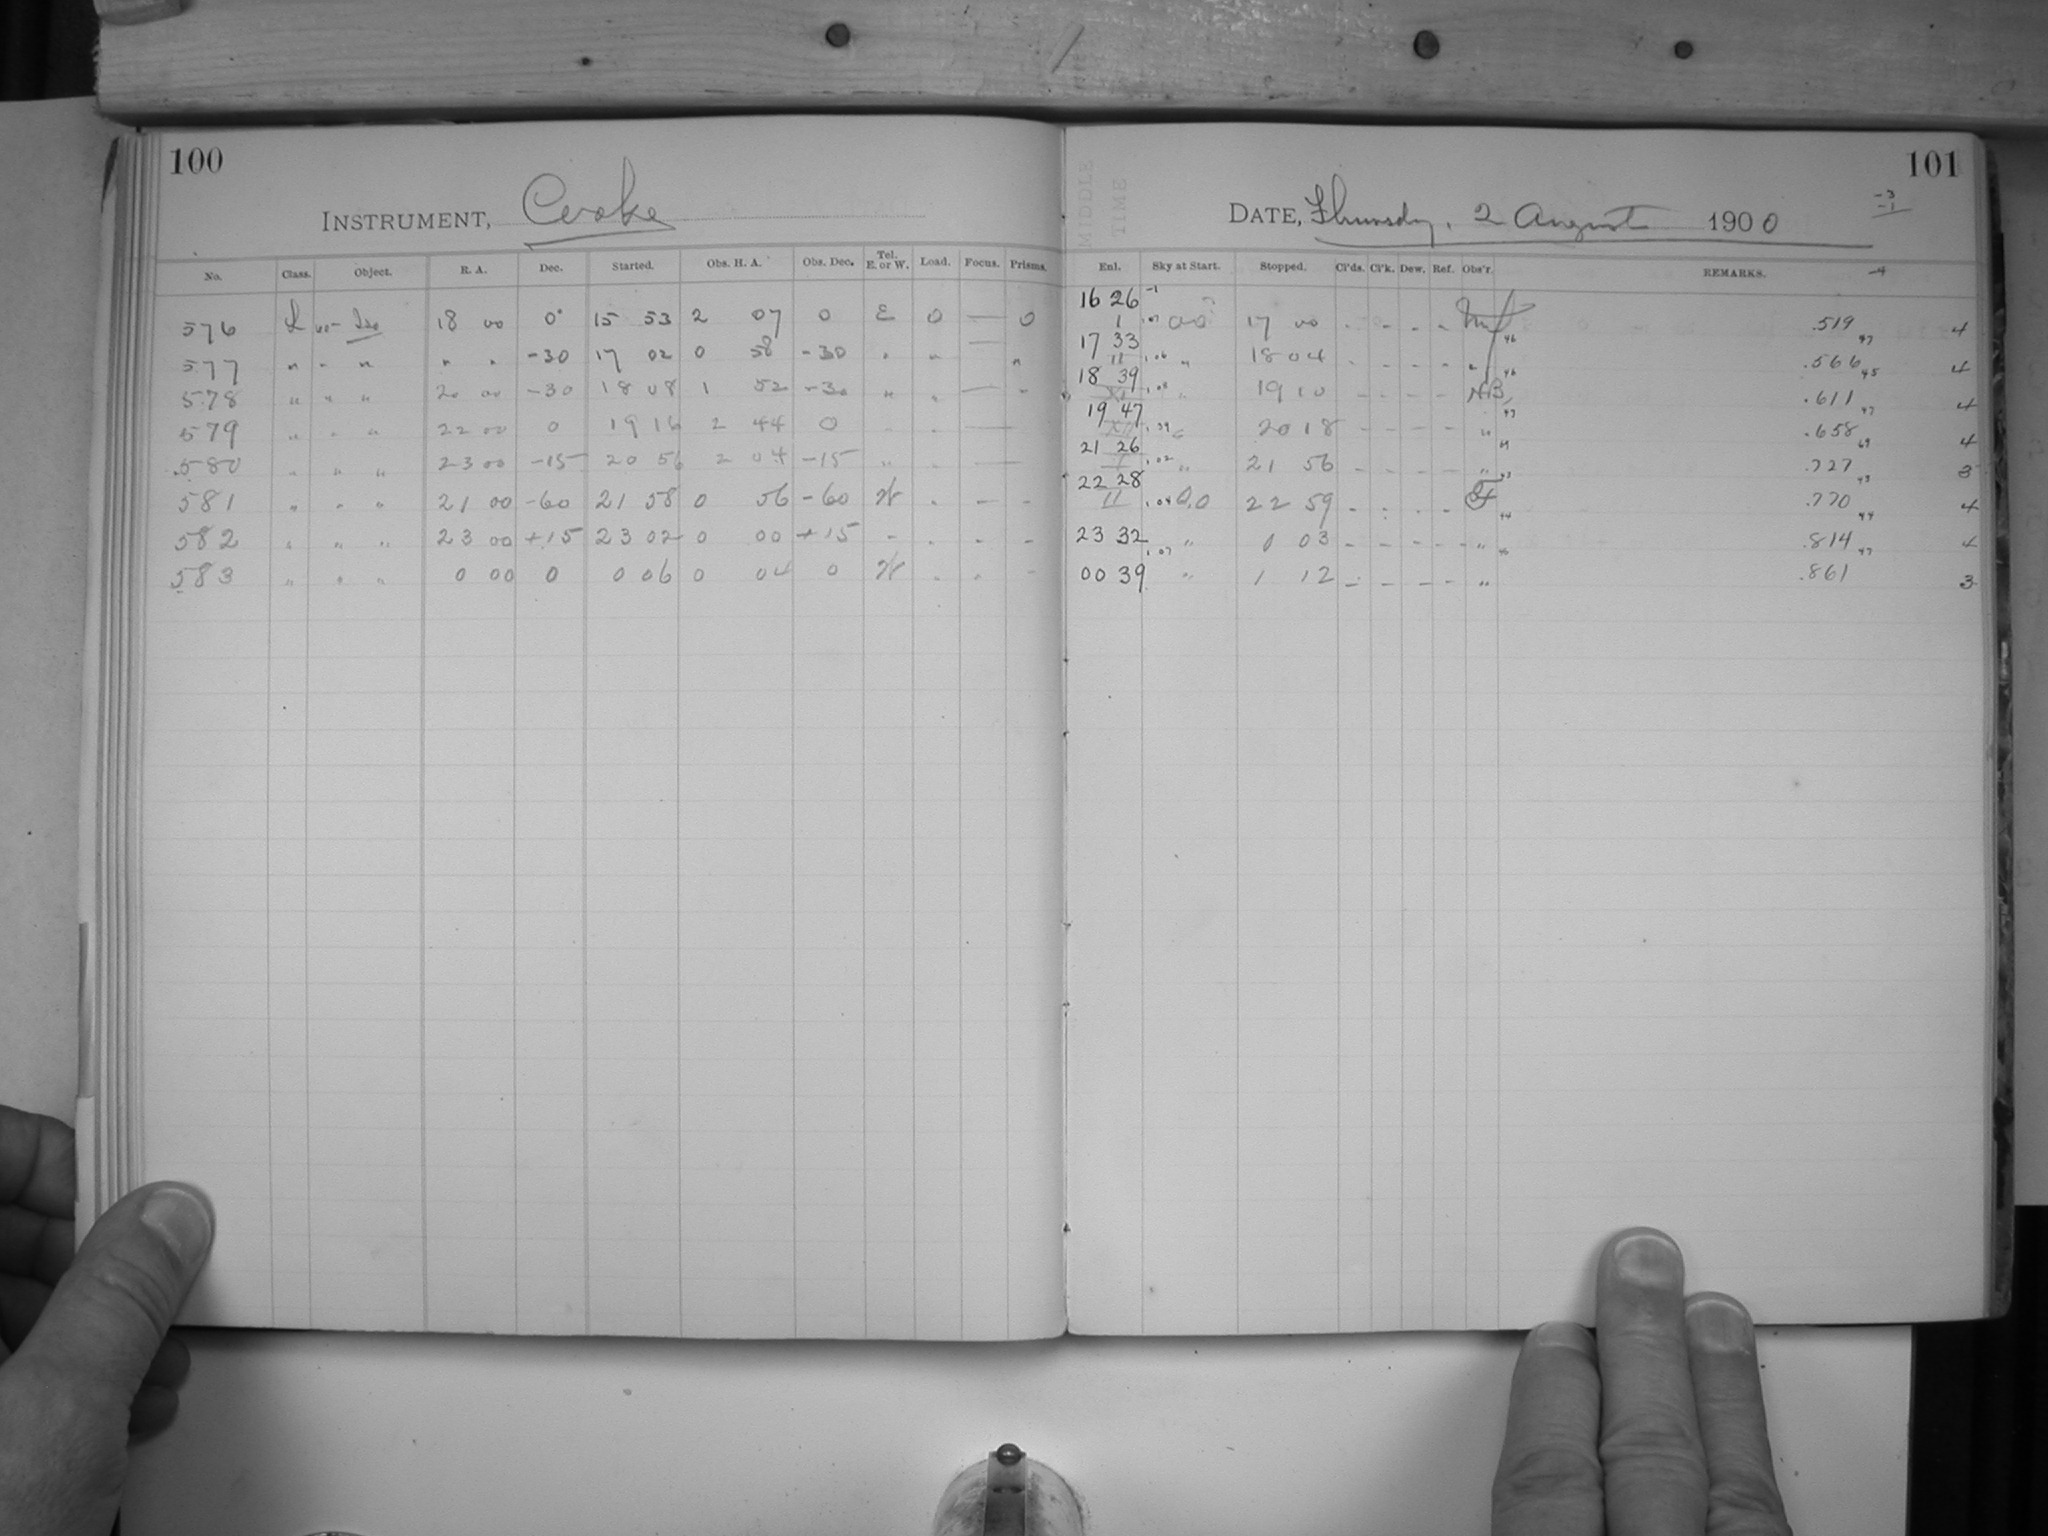 100
INSTRUMENT, Cooke
No. Class. Object. R. A. Dec. Started. Obs. H. A. Obs. Dec. Tel. E. or W. Load. Focus. Prisms.
576 L 18 00 0° 15 53 2 07 0 E 0 — 0
577 " " " " " -30 17 02 0 58 -30 " " — "
578 " " " 20 00 -30 18 08 1 52 -30 " " — -
579 " " " 22 00 0 19 16 2 44 0 - - —
580 " " " 23 00 -15 20 56 2 04 -15 " - —
581 " " " 21 00 -60 21 58 0 56 -60 W - - -
582 " " " 23 00 +15 23 02 0 00 +15 - - - -
583 " " " 0 00 0 0 06 0 04 0 W - - -
101
MIDDLE TIME
-3
-1
DATE, Thursday, 2 August 1900
-4
Enl. Sky at Start. Stopped. Cl'ds. Cl'k. Dew. Ref. Obs'r. REMARKS.
16 26 -1
1 .07 17 00 - - - - .519 4
17 33 46 47
11 .06 " 18 04 - - - - " .566 4
18 39 46 45
XI .08 " 19 10 - - - - .611 4
19 47 47 47
XII .39 20 18 - - - - " .658 4
21 26 69 69
1 .02 " 21 56 - - - - " .727 3
22 28 43 43
11 .04 0.0 22 59 - - - - .770 4
44 44
23 32 .07 " 0 03 - - - - " .814 47 4
00 39 " 1 12 - - - - " .861 3